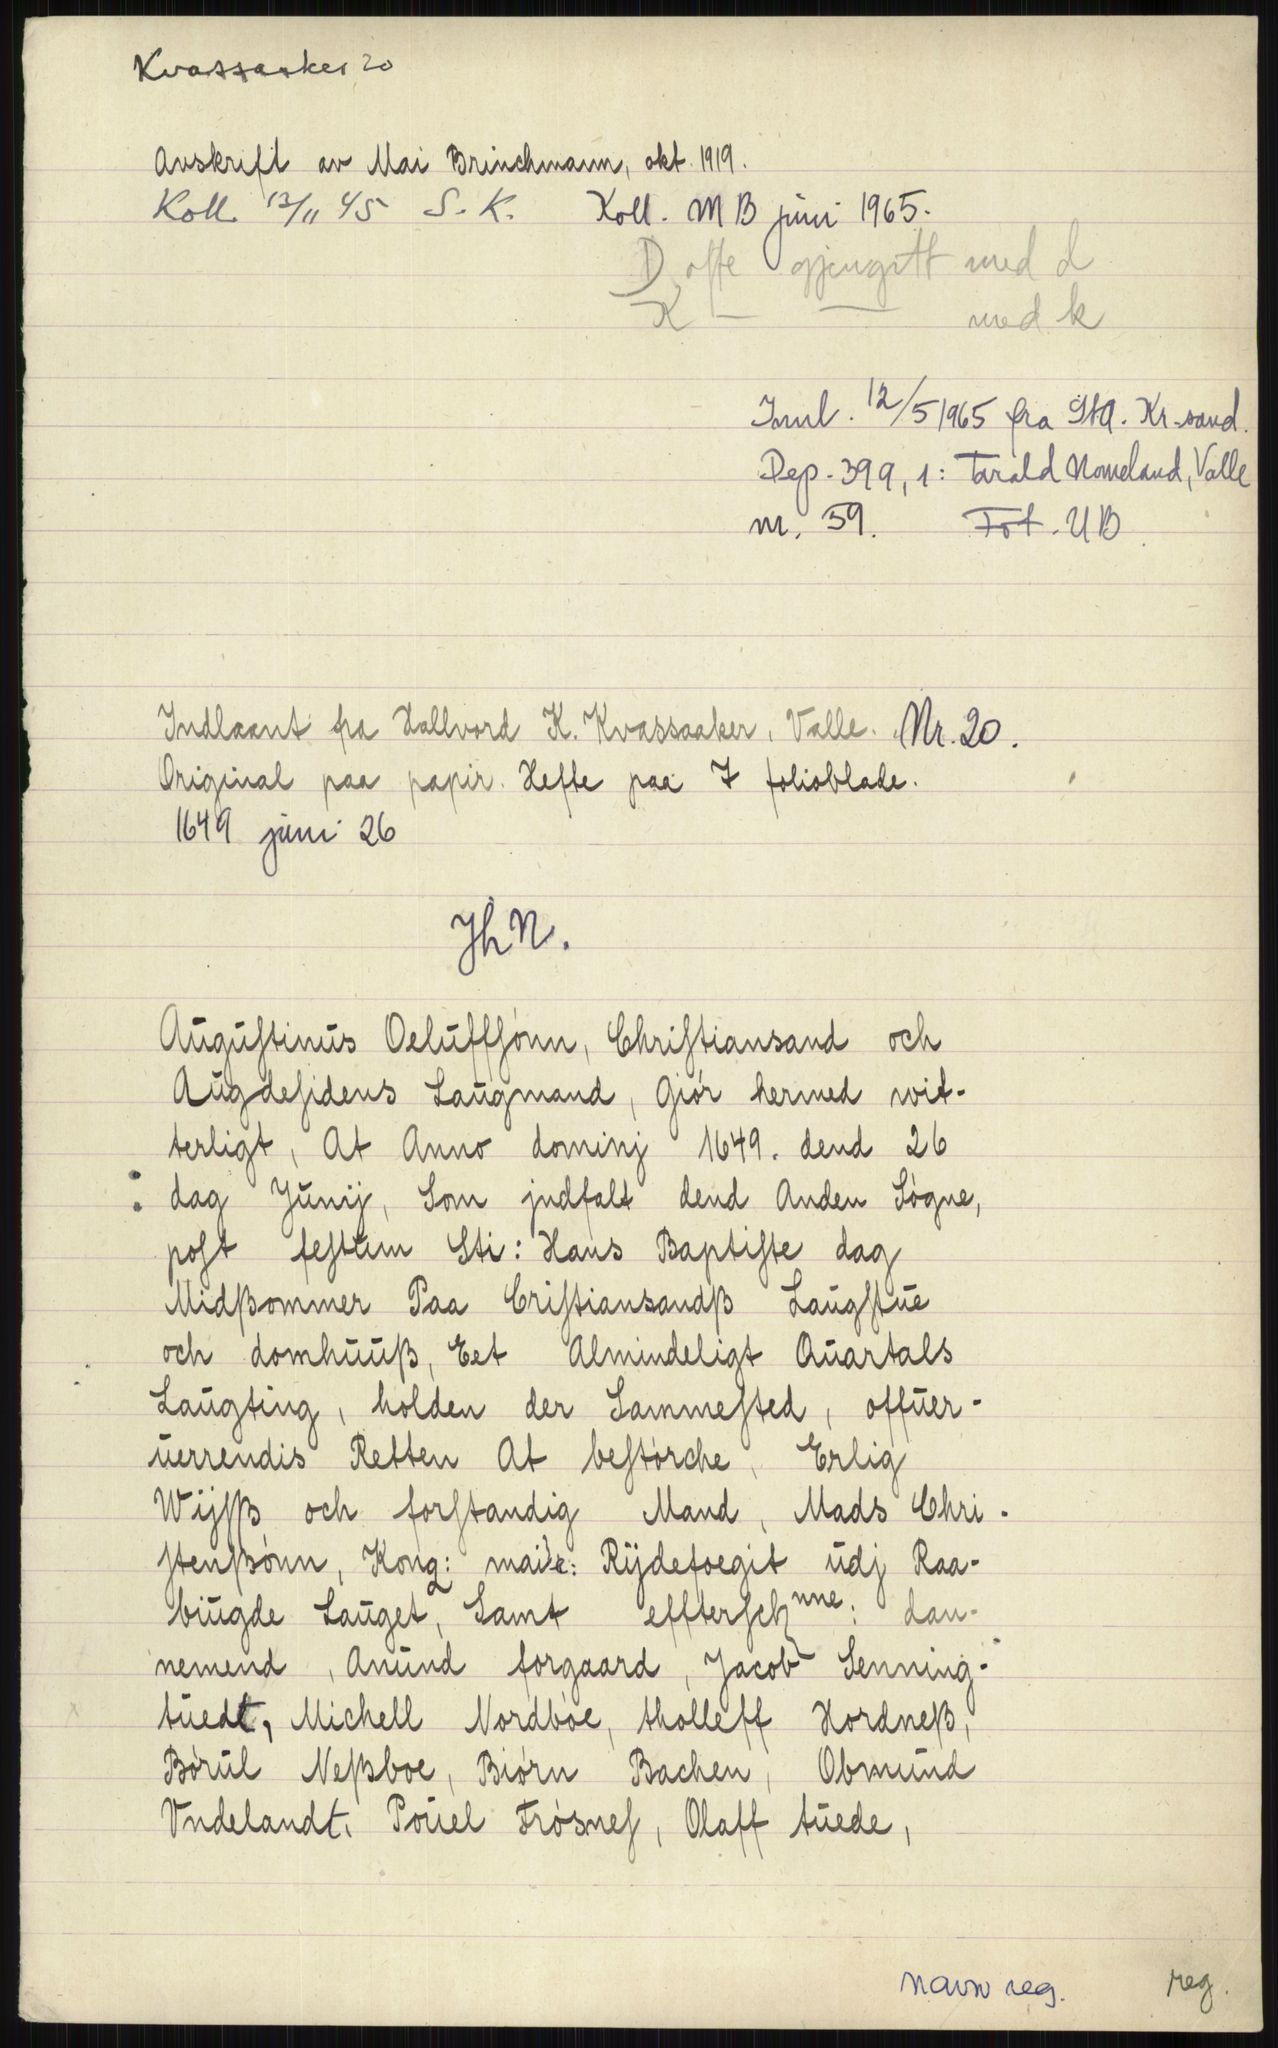 Kvassaaker 20
Avskrift av Mai Brinchmann, okt. 1919.
Koll. 12/11 45 S. K. Koll. M B juni 1965.
D ofte gjengitt med d
K — — med k
Innl. 12/5 1965 fra StA. Kr-sand.
Dep. 399, 1: Tarald Nomeland, Valle
nr. 59. Fot. UB
Indlaant fra Hallvord K. Kvassaaker, Valle. Nr. 20.
Original paa papir. Hefte paa 7 folioblade.
1649 juni 26
JhN.
Augustinus Oeluffsónn, Christiansand och
Augdesidens Laugmand, Giór hermed wit-
terligt, At Anno dominj 1649. dend 26
dag Junij, Som jndfalt dend Anden Sógne,
post festum Sti: Hans Baptiste dag
Midßommer Paa Cristiansandß Laugstue
och domhuuß, Eet Almindeligt Quartals
Laugting, holden der Sammested, offuer-
uerrendis Retten At bestórche, Erlig
Wijsß och forstandig Mand, Mads Chri-
stenßónn, Kong: mai: Rijdefoegit udj Raa-
biugde Lauget, Samt effterschnne: dan-
nemend, Anund forgaard, Jacob Senning-
tuedt, Michell Nordbóe, tholleff Hordneß,
Bórul Neßboe, Biórn Bachen, Obmund
Vndelandt, Pouel Frósnes, Olaff tuede,
navn reg. reg.